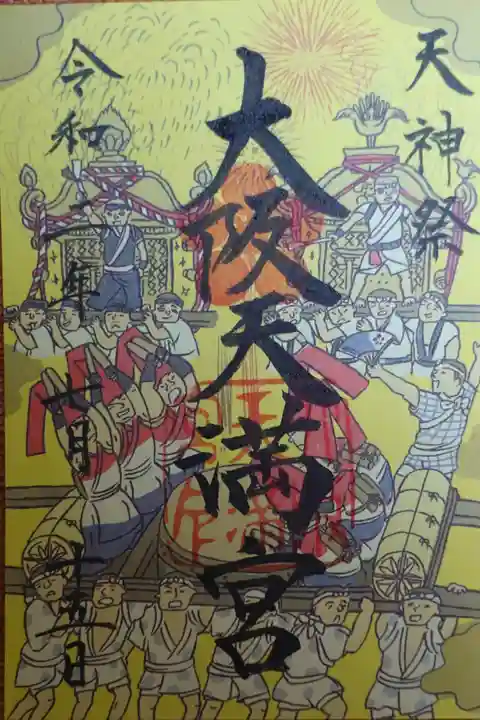 天神祭
大阪天満宮
令和二年七月廿五日